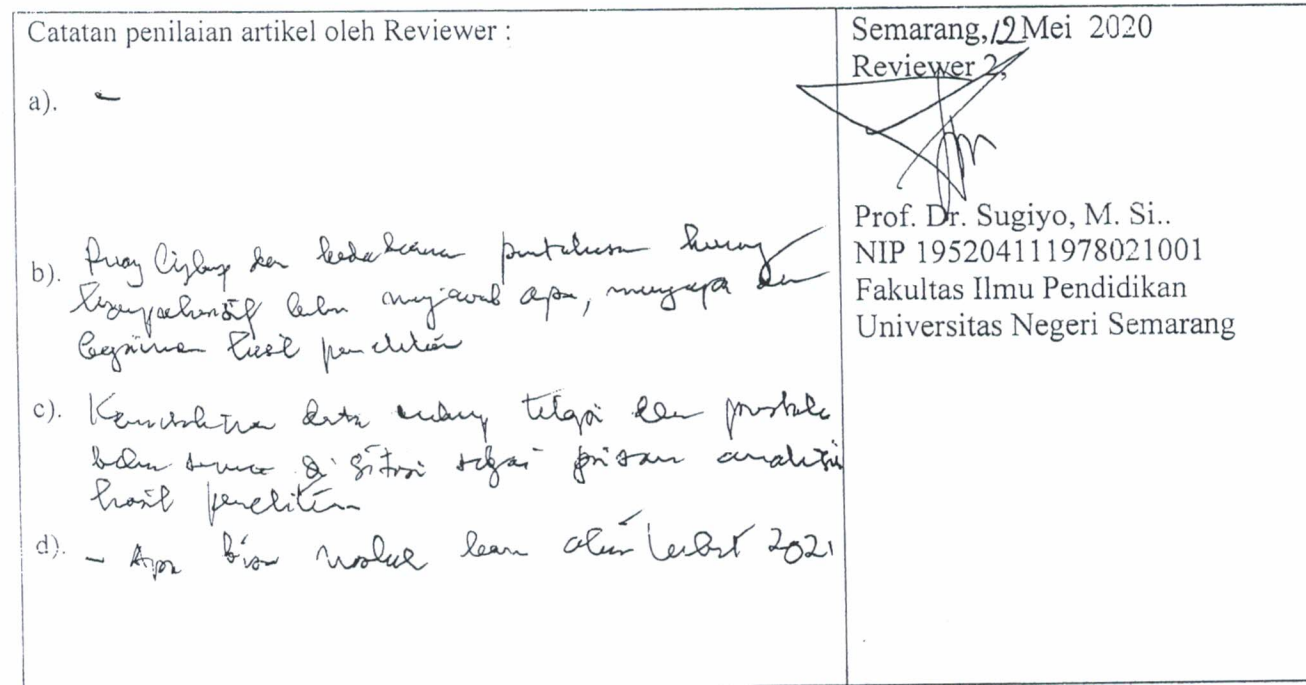 Catatan penilaian artikel oleh Reviewer :
a). -
b). Ruang lingkup dan kedalaman kurang
komprehensif belum menjawab apa, mengapa dan
bagaimana hasil penelitian
c). data cukup tetapi dan pustaka
belum semua di sitasi sbgai pisau analisis
hasil penelitian
d). - Apa bisa 2021
Semarang, 12 Mei 2020
Reviewer 2,
Prof. Dr. Sugiyo, M. Si..
NIP 195204111978021001
Fakultas Ilmu Pendidikan
Universitas Negeri Semarang